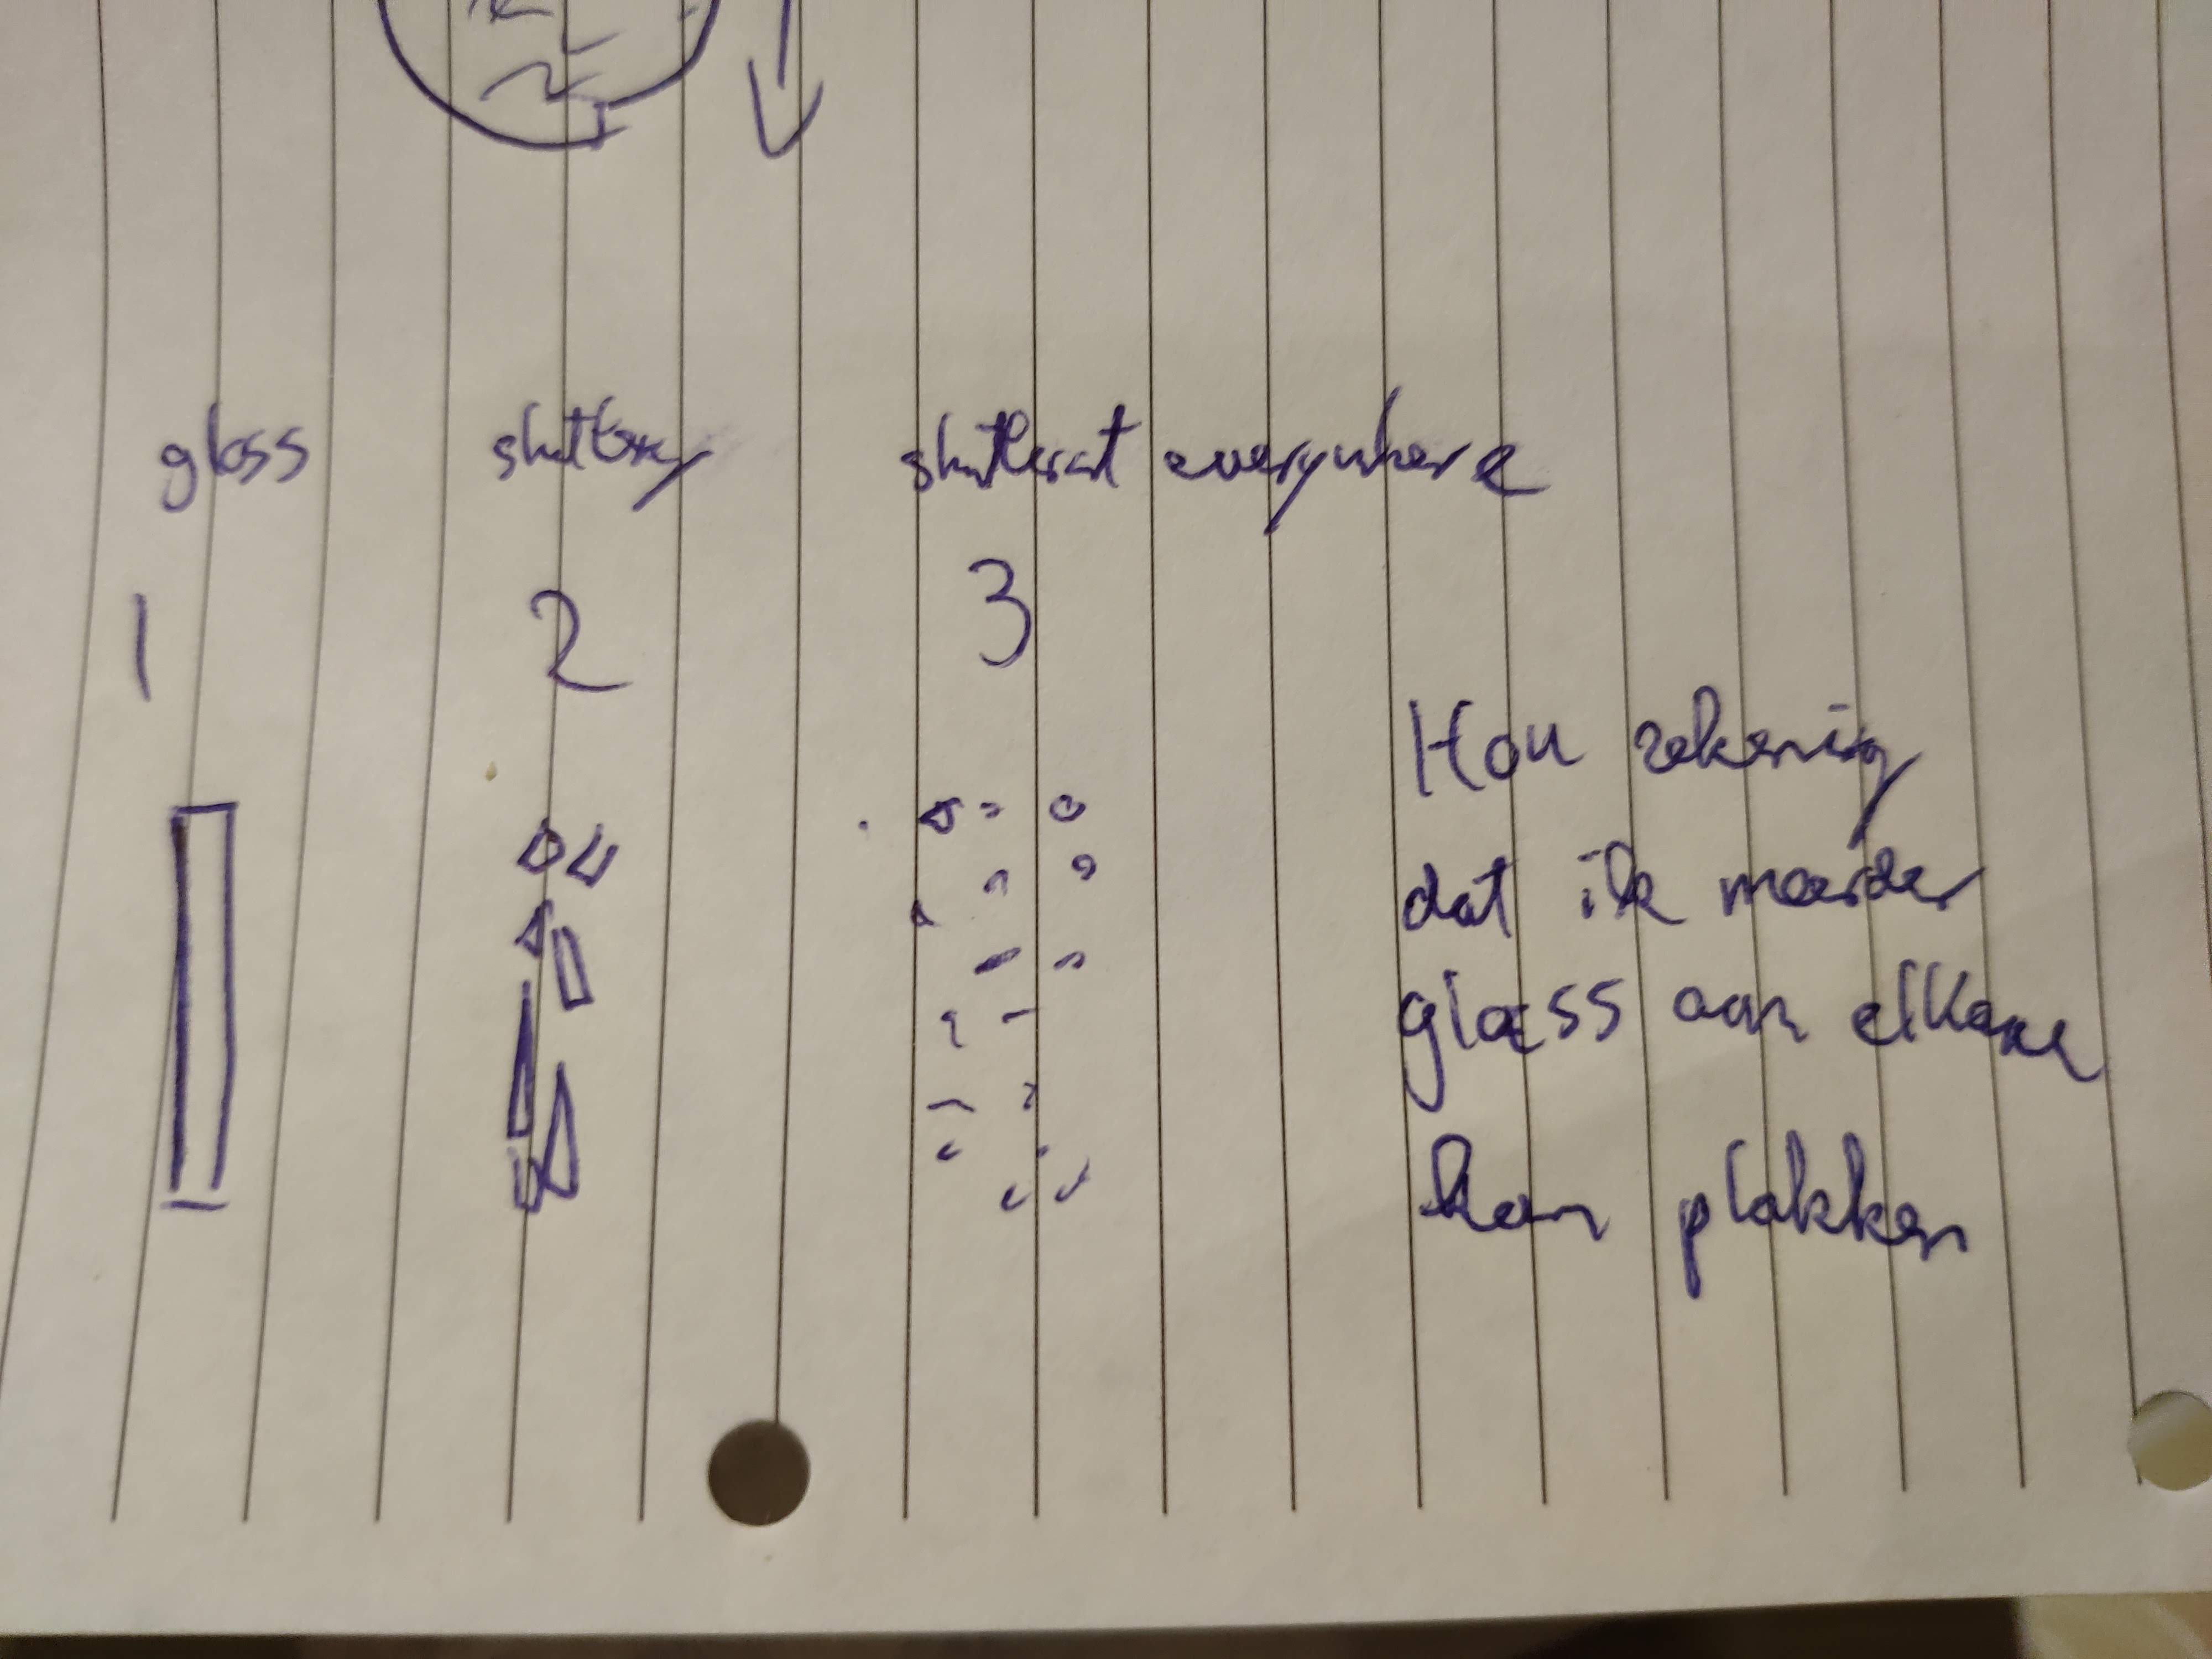 glass shatter shatterat everywhere
1 2 3
Hou rekenig
dat ik meerder
glass aan elkaar
kan plakken